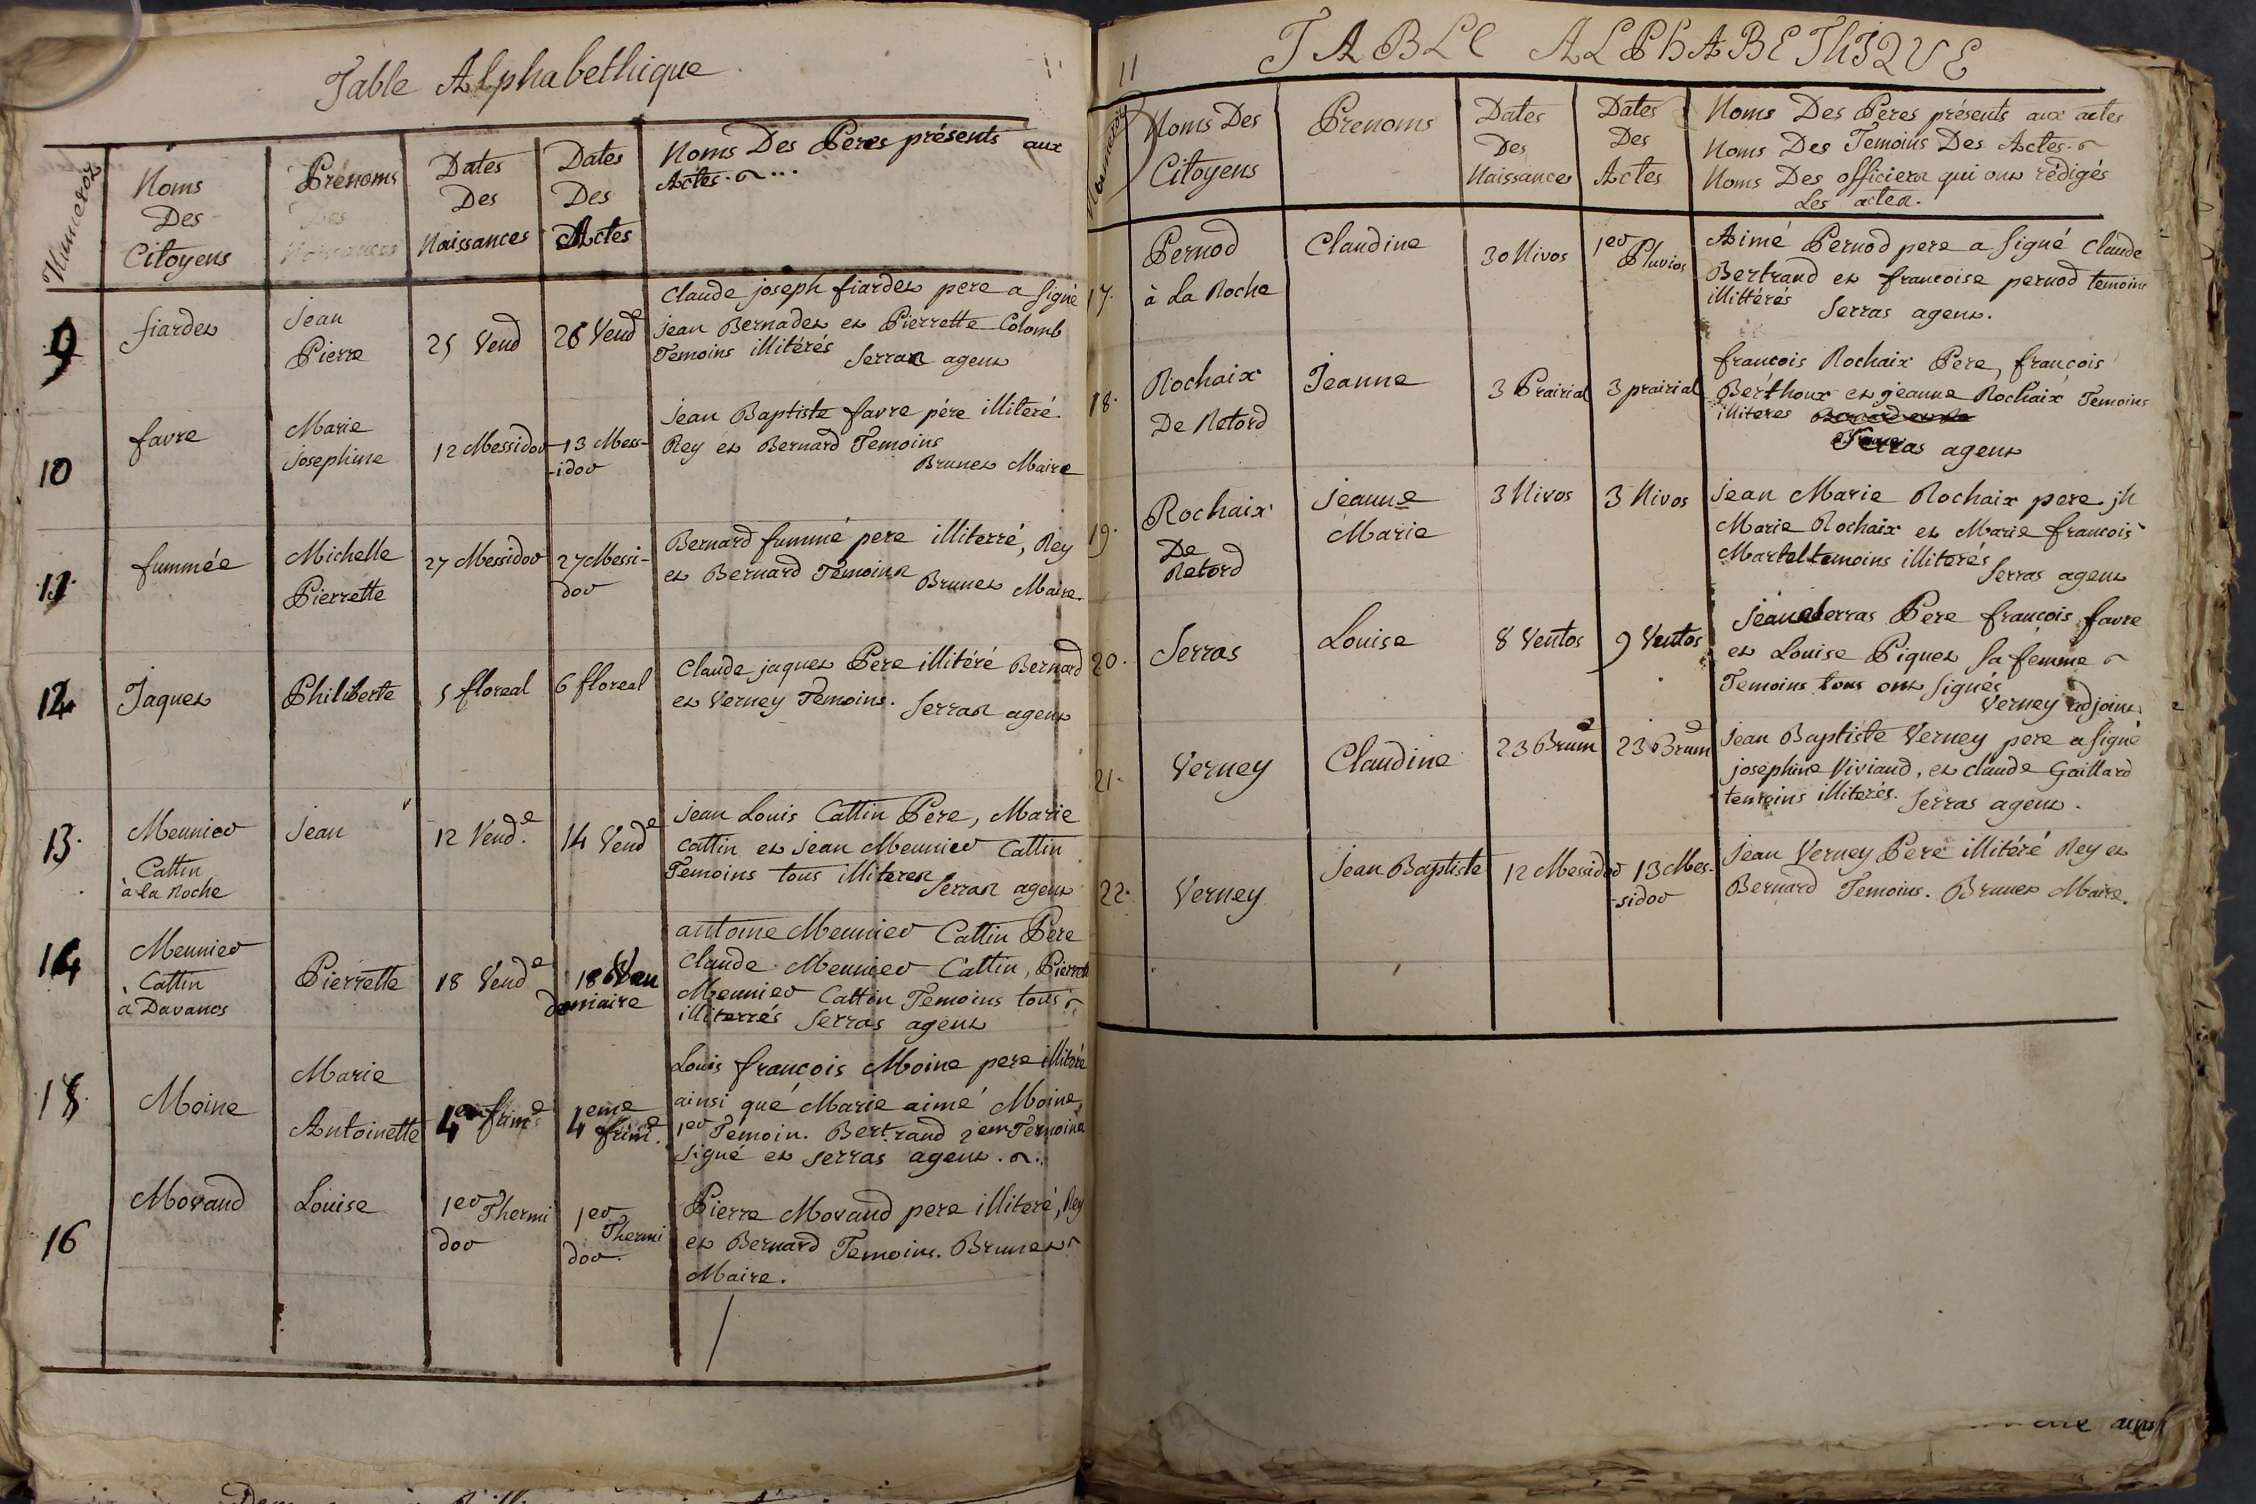 Table Alphabethique
Numeros
Noms
Des
Citoyens
Prénoms
Des
Naissances
Dates
Des
Naissances
Dates
Des
Actes
Noms Des Peres présents aux
Actes.
9
fiardet
Jean
Pierre
25 Vend
26 Vend
Claude joseph fiardet pere a signé
jean Bernadet et Pierrette Colomb
Temoins illitérés Serras agent
10
favre
Marie
josephine
12 Messidor
13 Mess-
-idor
jean Baptiste favre pére illiteré
Rey et Bernard Temoins
Brunet Maire
11
fummée
Michelle
Pierrette
27 Messidor
27 Messi-
dor
Bernard fummé pere illiterré, Rey
et Bernard Temoins Brunet Maire.
12
Jaquet
Philiberte
5 floreal
6 floreal
Claude jaquet Pere illitéré Bernard
et Verney Temoins. Serras agent
13.
Meunier
Cattin
à la Roche
Jean
12 Vend.e
14 Vend e
jean Louis Cattin Pere, Marie
Cattin et jean Meunier Cattin
Temoins tous illiteres
Serras agent
14
Meunier
Cattin
à Davanos
Pierrette
18 Vend e
18 Ven
demiaire
antoine Meunier Cattin Pere
Claude Meunier Cattin, Pierrette
Meunier Cattin Temoins tous
illiterrés Serras agent
15.
Moine
Marie
Antoinette
4em frim e
4eme
frim e.
Louis francois Moine pere illiteré
ainsi qué Marie aimé Moine,
1er Temoin. Bertrand 2em Temoin a
signé et serras agent.
16
Morand
Louise
1er Thermi
dor
1er
Thermi
dor.
Pierre Morand pere illiteré, Rey
et Bernard Temoins. Brunet
Maire.
11
TABLE ALPHABETHIQUE
Numeros
Noms Des
Citoyens
Prenoms
Dates
Des
Naissances
Dates
Des
Actes
Noms Des Peres présents aux actes
Noms Des Temoins Des Actes.
Noms Des officiers qui ont rédigés
Les actes.
17.
Pernod
à La Roche
Claudine
30 Nivos
1er
Pluvios
Aimé Pernod pere a signé Claude
Bertrand et francoise pernod temoins
illittérés Serras agent.
18.
Rochaix
De Retord
Jeanne
3 Prairial
3 prairial
francois Rochaix Pere, francois
Berthoux et jeanne Rochaix Temoins
illiteres
Serras agent
19.
Rochaix
De
Retord
Jeanne
Marie
3 Nivos
3 Nivos
jean Marie Rochaix pere. jh
Marie Rochaix et Marie francois
Martel temoins illiterés
Serras agent
20.
Serras
Louise
8 Ventos
9 Ventos
Serras Pere francois favre
et Louise Piquet sa femme
Temoins tous ont signés
Verney adjoint
21.
Verney
Claudine
23 Brum
23 Brum
Jean Baptiste Verney pere a signé
josephine Viviand, et claude Gaillard
temoins illiterés. Serras agent.
22.
Verney
Jean Baptiste
12 Messidor
13 Mes-
-sidor
Jean Verney Pere illitéré Rey et
Bernard Temoins. Brunet Maire.